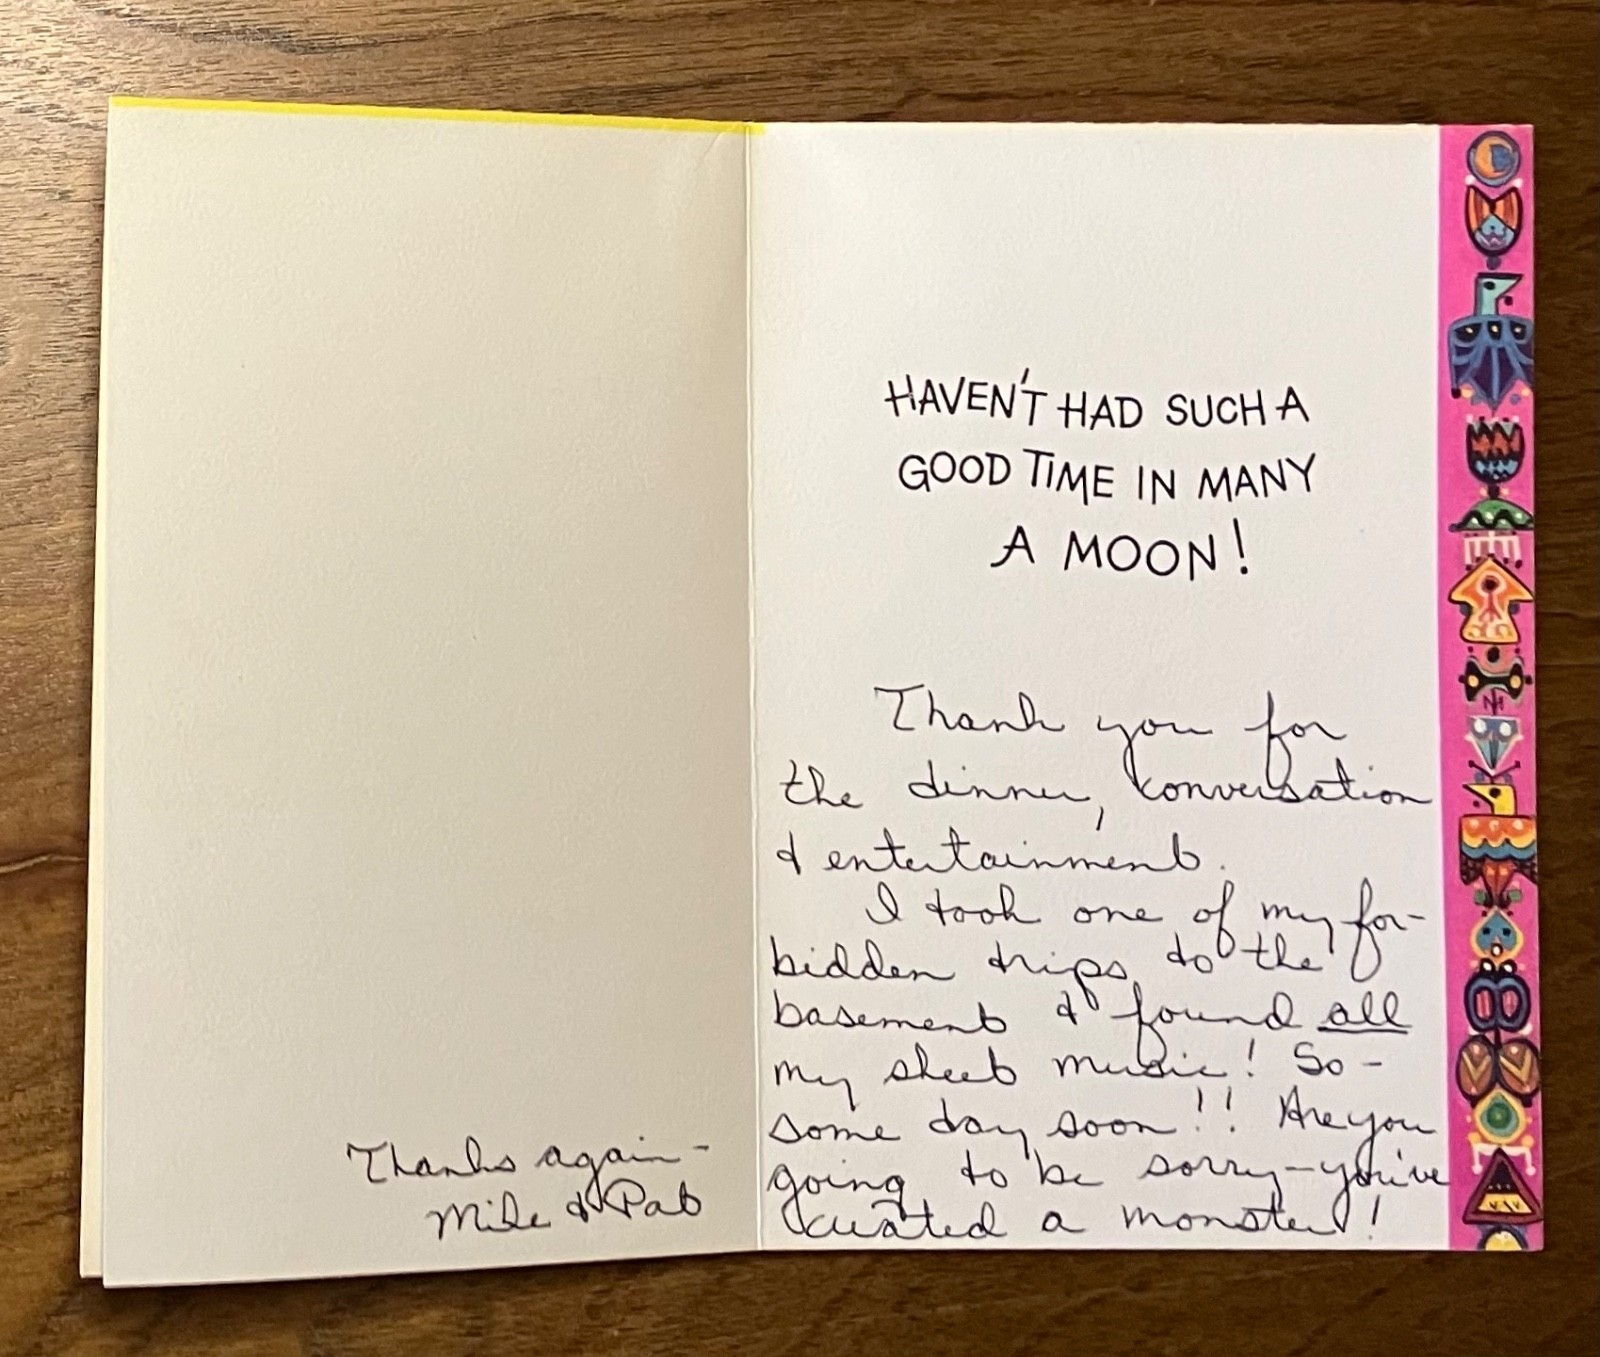 HAVEN'T HAD SUCH A
GOOD TIME IN MANY
A MOON!
Thank you for
the dinner, conversation
& entertainment.
I took one of my for-
bidden trips to the
basement & found all
my sheet music! So -
some day soon!! Are you
going to be sorry - you've
created a monster!
Thanks again -
Mike & Pat